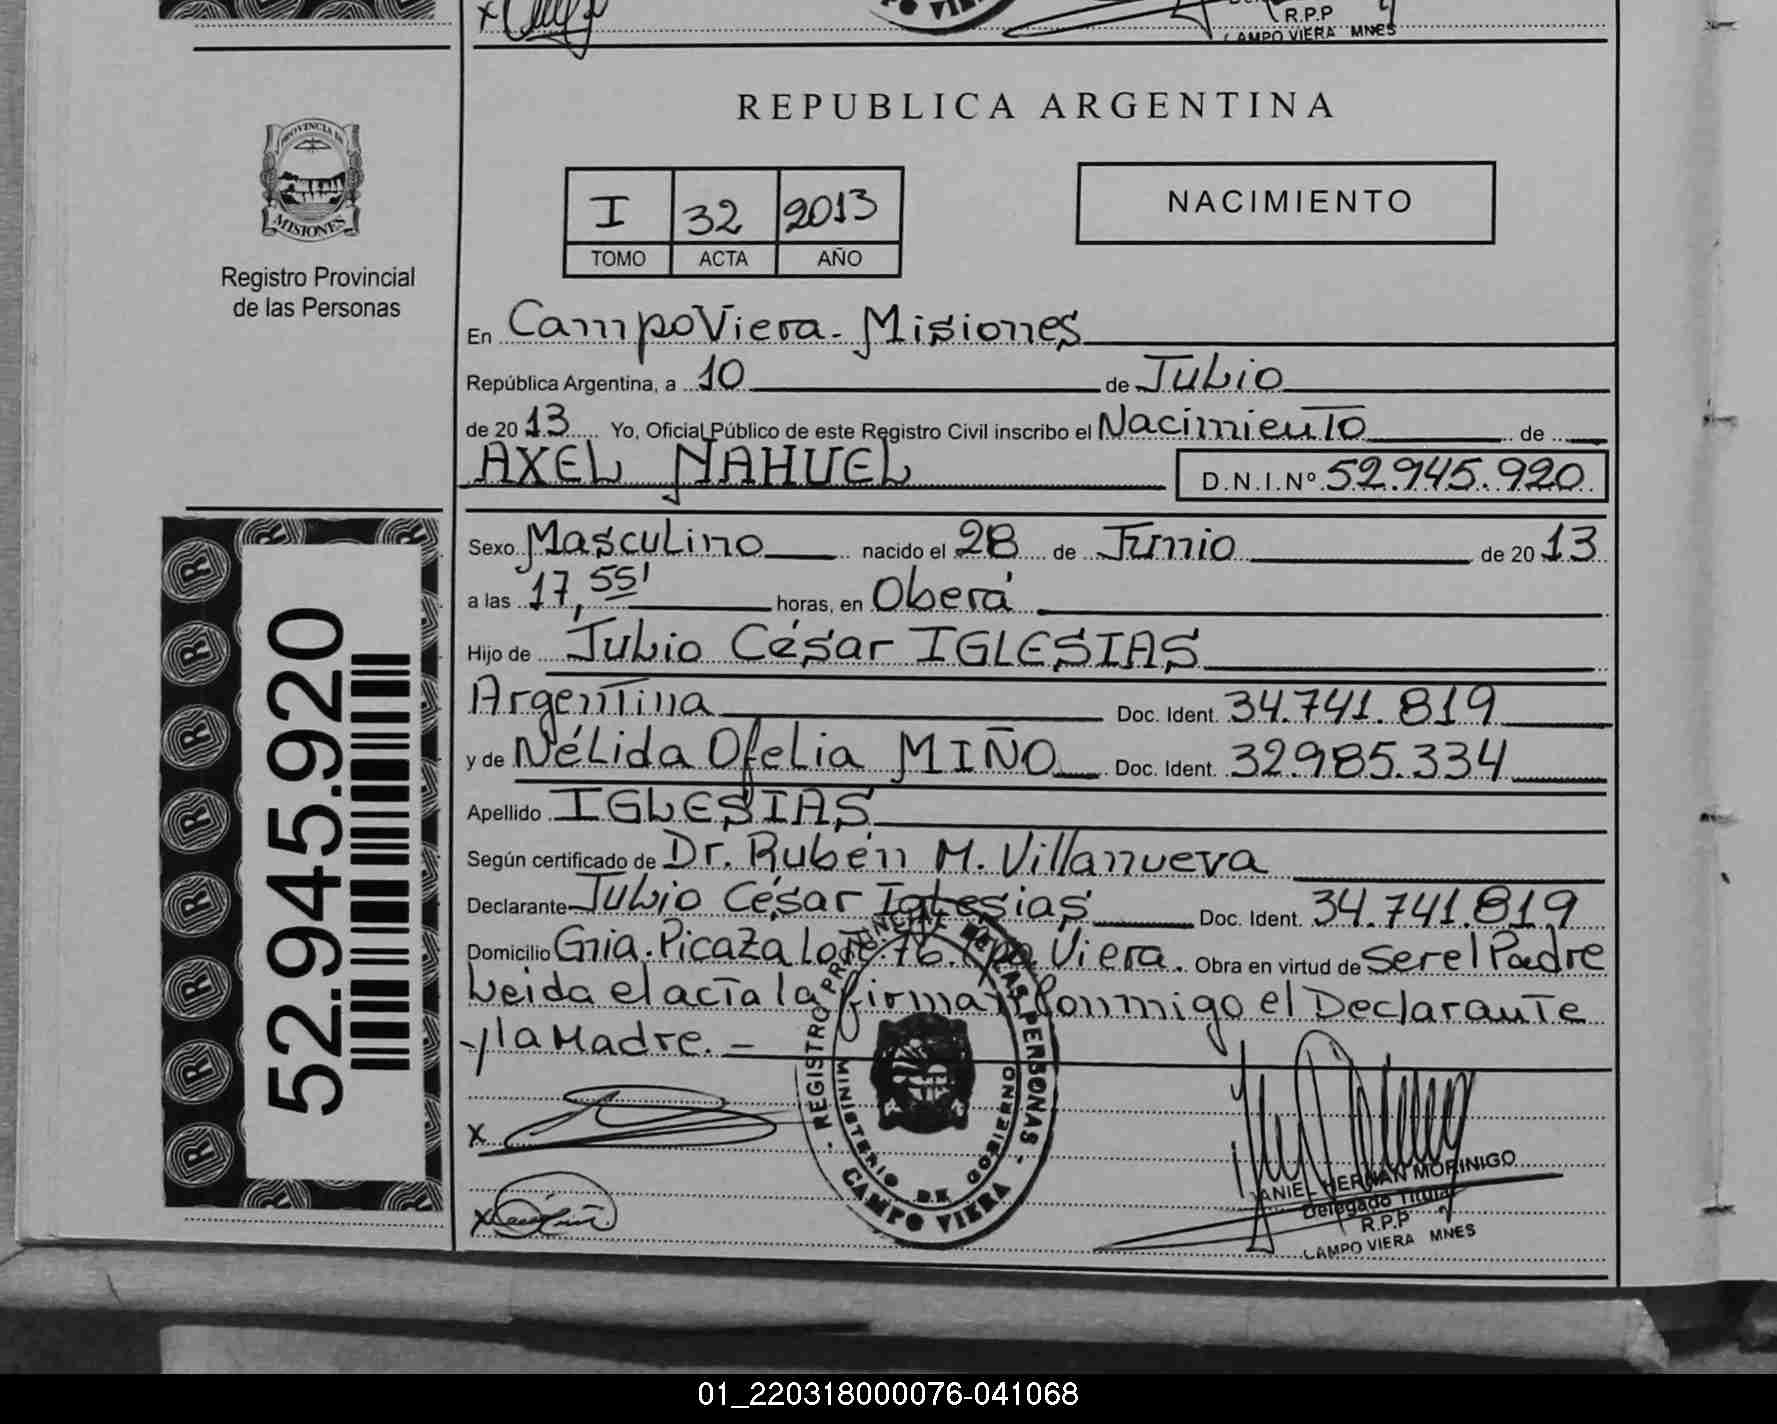 R.P.P
CAMPO VIERA MNES
REPUBLICA ARGENTINA
PROVINCIA DE
MISIONES
Registro Provincial
de las Personas
I 32 2013
TOMO ACTA AÑO
NACIMIENTO
En Campo Viera - Misiones
República Argentina, a 10 de Julio
de 2013 Yo, Oficial Público de este Registro Civil inscribo el Nacimiento de
AXEL NAHUEL D.N.I.Nº 52.945.920
Sexo Masculino nacido el 28 de Junio de 2013
a las 17,55' horas, en Oberá
Hijo de Julio César IGLESIAS
Argentina Doc. Ident. 34.741.819
y de Nélida Ofelia MIÑO Doc. Ident. 32.985.334
Apellido IGLESIAS
Según certificado de Dr. Rubén M. Villanueva
Declarante Julio César Iglesias Doc. Ident. 34.741.819
Domicilio Gnia. Picaza Lote 76. Cpo Viera. Obra en virtud de ser el Padre
Leida el acta la firman Conmigo el Declarante
y la Madre. -
52.945.920
x
x
REGISTRO PROVINCIAL DE LAS PERSONAS -
MINISTERIO DE GOBIERNO
CAMPO VIERA
DANIEL HERNAN MORINIGO
Delegado Titular
R.P.P
CAMPO VIERA MNES
01_220318000076-041068